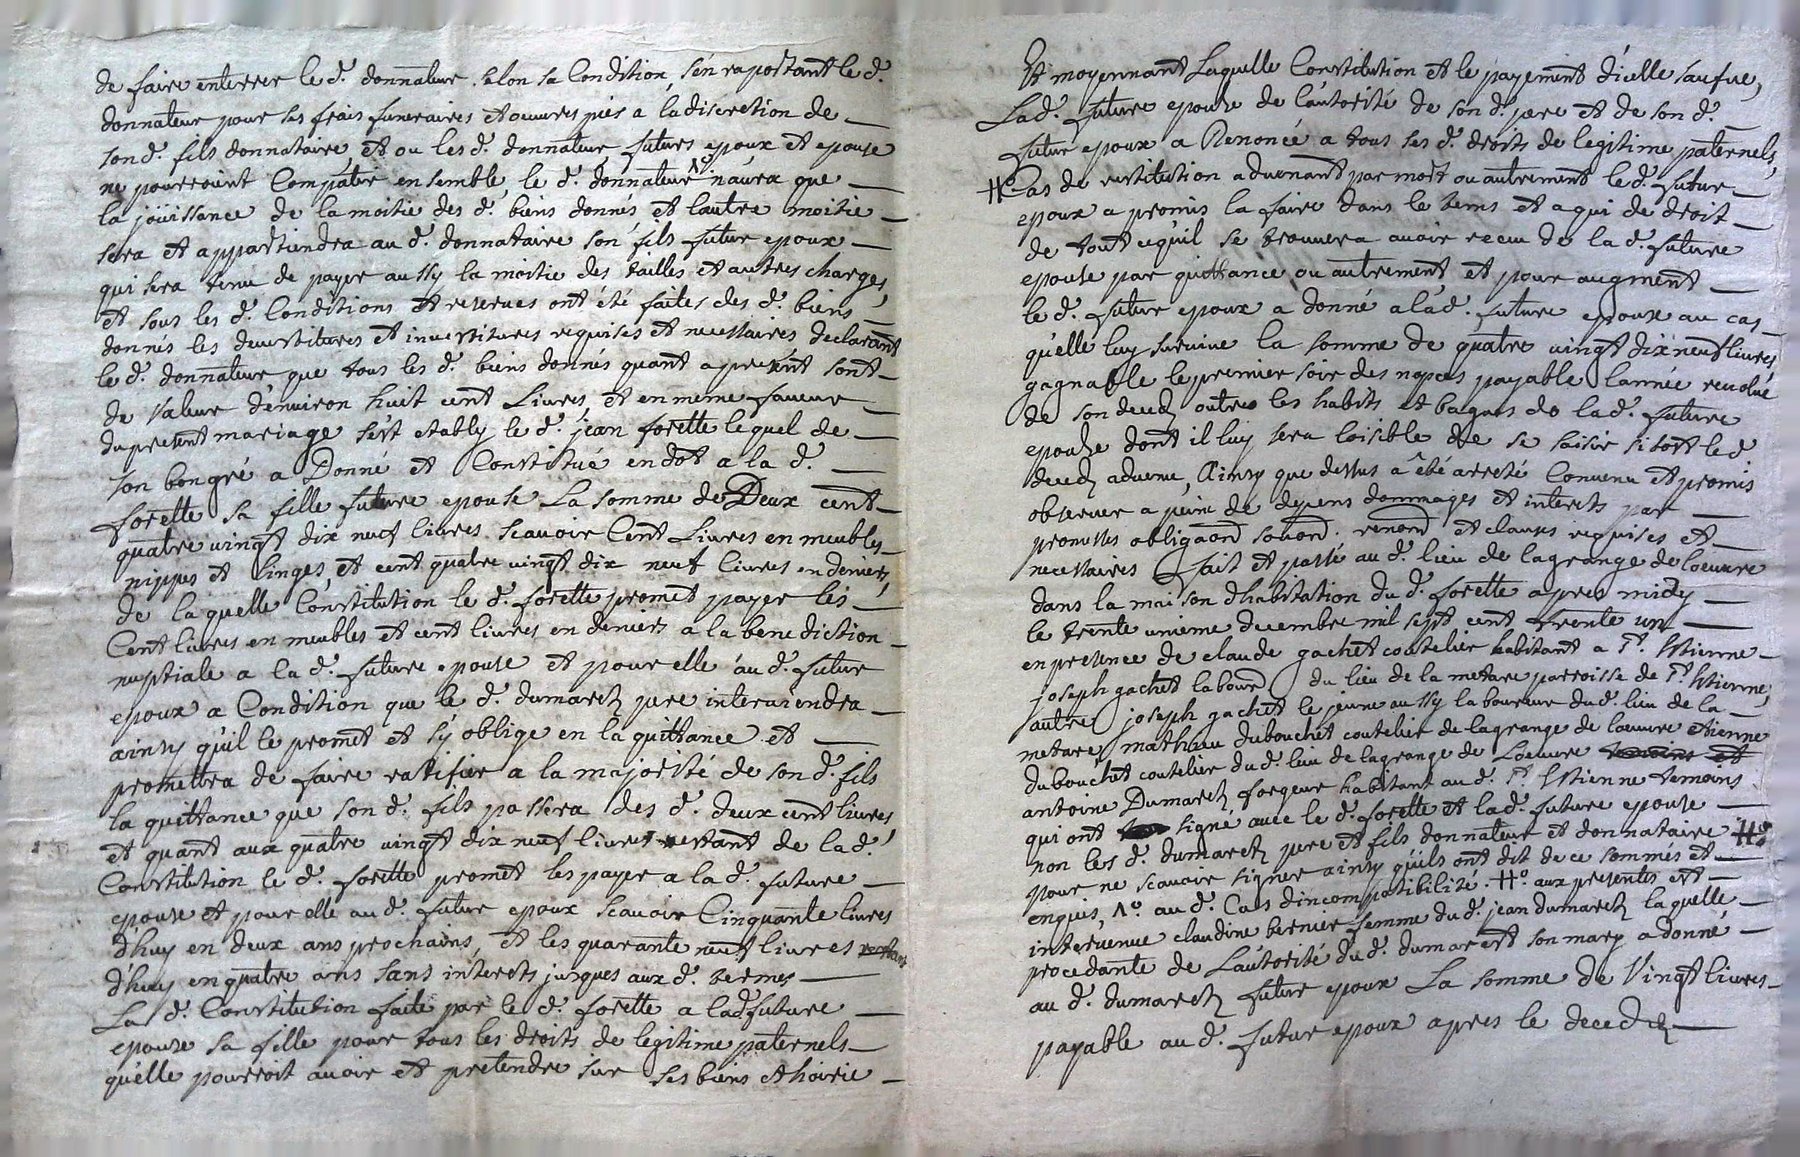 de faire enterrer le d. donnateur selon sa Condition, s'en raportant le d.
donnateur pour ses frais funeraires et oeuvres pies a la discretion de
son d. fils donnataire, et ou les d. donnateur, futurs epoux et epouse
ne pourroint Compatir ensemble, le d. donnateur Λo n'aura que
la joüissance de la moitie des d. biens donnés et lautre moitie
sera et appartiendra au d. donnataire son fils futur epoux
qui sera tenu de payer aussy la moitie des tailles et autres charges,
et sous les d. Conditions et reserves ont été faites des d. biens
donnés les devestitures et investitures requises et necessaires declarant
le d. donnateur que tous les d. biens donnés quant apresent sont
de Valeur d'environ huit cent Livres et en meme faveur
du present mariage s'est etably le d. jean forette lequel de
son bongré a Donné et Constitué en dot a la d.
forette sa fille future epouse La somme de Deux cent
quatre vingt dix neuf livres scavoir Cent Livres en meubles
nippes et linges, et cent quatre vingt dix neuf livres en deniers,
de la quelle Constitution le d. forette promet payer les
Cent livres en meubles et cent livres en deniers a la benediction
nuptiale a la d. future epouse et pour elle au d. futur
epoux a Condition que le d. dumarest pere interviendra
ainsy qu'il le promet et s'y oblige en la quittance et
promettra de faire ratifier a la majorité de son d. fils
la quittance que son d. fils passera des d. deux cent livres,
et quant aux quatre vingt dix neuf livres restant de la d.
Constitution le d. forette promet les payer a la d. future
epouse et pour elle au d. futur epoux scavoir Cinquante livres
d'huy en deux ans prochains, et les quarante neuf livres restant
d'huy en quatre ans sans interets jusques aux d. termes
La d. Constitution faite par le d. forette a la d. future
epouse sa fille pour tous les droits de legitime paternels
qu'elle pourroit avoir et pretendre sur ses biens et hoirie
Et moyennant Laquelle Constitution et le payement d'icelle sauf ue,
La d. future epouse de l'autorité de son d. pere et de son d.
futur epoux a Renoncé a tous ses d. droits de legitime paternels,
Cas de restitution advenant par mort ou autrement le d. futur
epoux a promis la faire dans le tems et a qui de droit
de tout ce qu'il se trouvera avoir recu de la d. future
epouse par quittance ou autrement, et pour augment
le d. futur epoux a donné a la d. future epouse au cas
qu'elle luy survive la somme de quatre vingt dix neuf livres
gagnable le premier soir des nopces payable lannée revolue
de son deced, outre les habits et bagues de la d. future
epouse dont il luy sera loisible de se saisir sitost le d
deced advenu, Ainsy que dessus a été arreté Convenu et promis
observer a peine de depens dommages et interets par
promesses obligaond soûond. renond et clauses requises et
necessaires fait et passé au d. lieu de lagrange de loeuvre
dans la maison dhabitation du d. forette apres midy
le trente unieme decembre mil sept cent trente un
en presence de claude gachet coutelier habitant a St. Estienne
joseph gachet labour du lieu de la metare parroisse de St Estienne,
autre joseph gachet le jeune aussy laboureur du d. lieu de la
metare, mathieu dubouchet coutelier de lagrange de loeuvre etienne
dubouchet coutelier du d. lieu de lagrange de Loeuvre temoins et
antoine Dumarest forgeur habitant au d. St Estienne temoins
qui ont signe avec le d. forette et la d. future epouse
non les d. dumarest pere et fils donnateur et donnataire
pour ne scavoir signer ainsy qu'ils ont dit de ce sommés et
enquis, Λo. au d. Cas dincompatibilité. Ho. aux presentes est
intervenue claudine bernier femme du d. jean dumarest laquelle
procedante de L'autorité du d. dumarest son mary a donné
au d. dumarest futur epoux La somme de Vingt livres
payable au d. futur epoux apres le deced